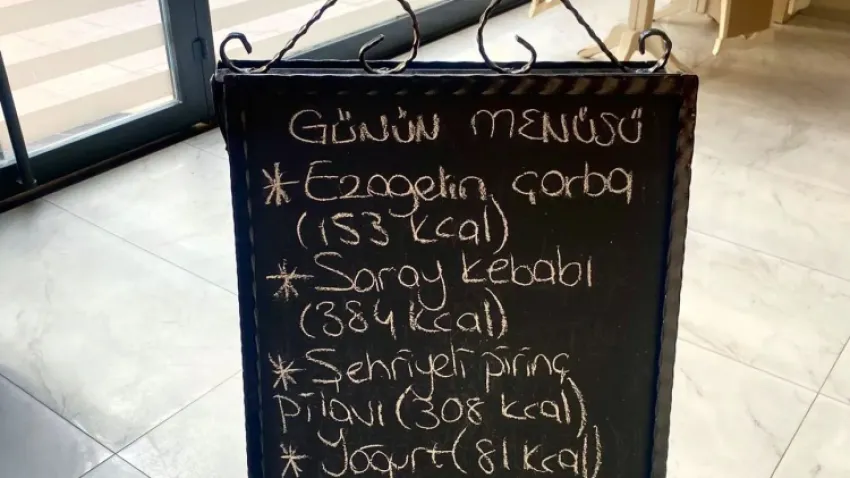 GÜNÜN MENÜSÜ
* Ezogelin çorba
(153 kcal)
* Saray kebabı
(384 kcal)
* Şehriyeli pirinç
pilavı (308 kcal)
* Yoğurt (81 kcal)